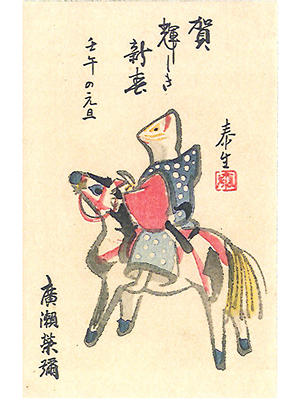 賀
輝しき
新春
壬午の元旦
泰生
廣瀬榮彌